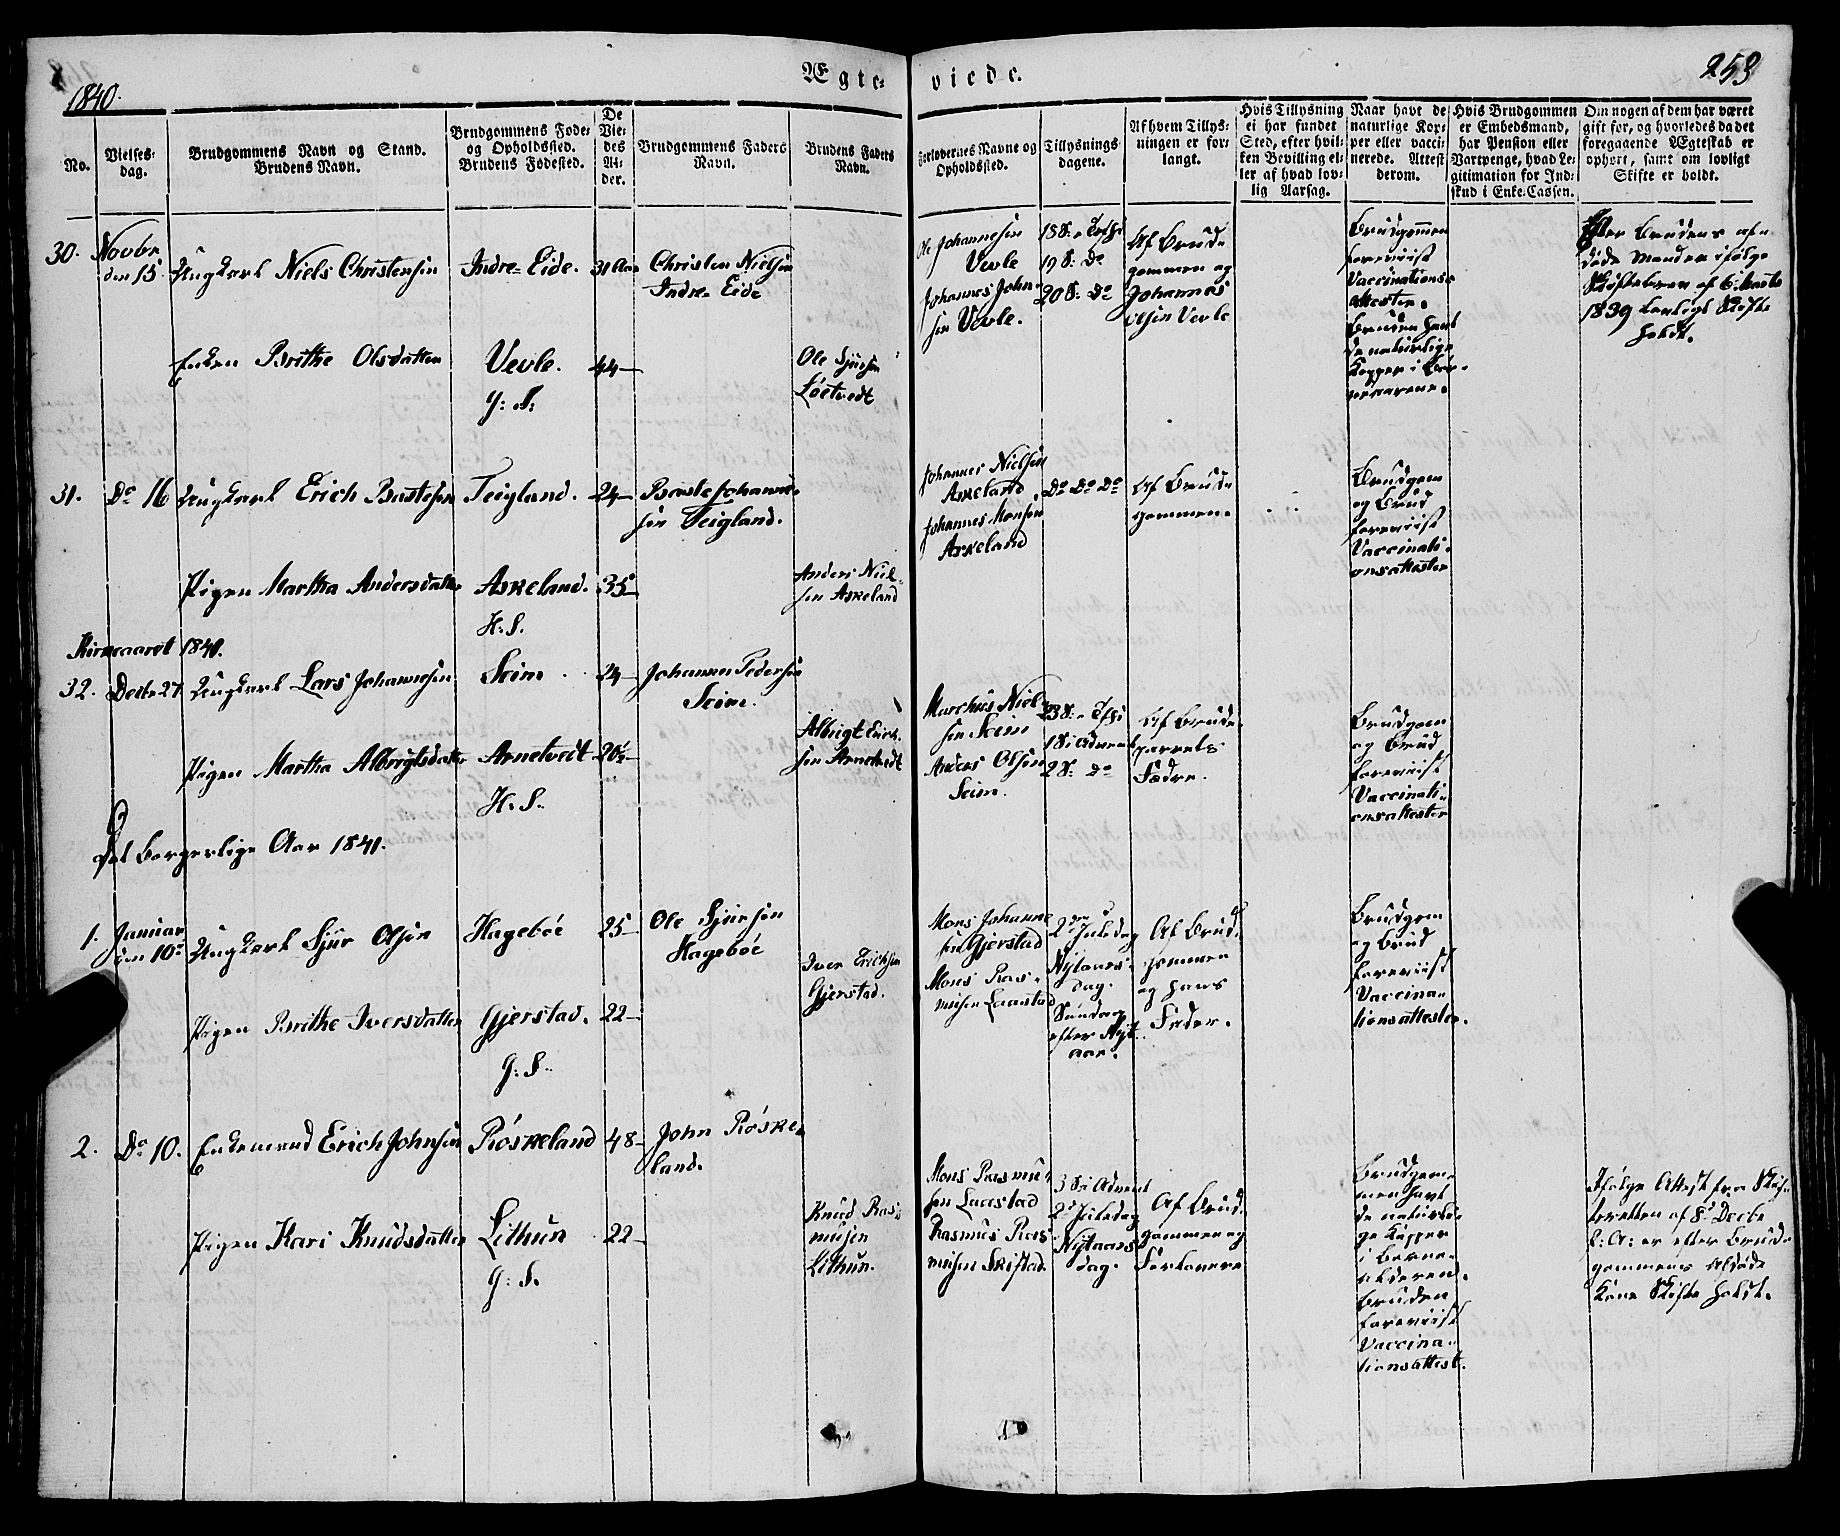 1840.
Ægte-
viede.
253
No.
Vielses-
dag.
Brudgommens Navn og Stand.
Brudens Navn.
Brudgommens Føde-
og Opholdssted.
Brudens Fødested.
De
Vie-
des
Al-
der.
Brudgommens Faders
Navn.
Brudens Faders
Navn.
Forlovernes Navne og
Opholdssted.
Tillysnings-
dagene.
Af hvem Tillys-
ningen er for-
langt.
Hvis Tillysning
ei har fundet
Sted, efter hvil-
ken Bevilling el-
ler af hvad lov-
lig Aarsag.
Naar havt de
naturlige Kop-
per eller vacci-
nerede. Attest
derom.
Hvis Brudgommen
er Embedsmand,
har Pension eller
Vartpenge, hvad Le-
gitimation for Ind-
skud i Enke-Cassen.
Om nogen af dem har været
gift før, og hvorledes da det
foregaaende Ægteskab er
ophørt, samt om lovligt
Skifte er holdt.
30.
Novbr
den 15
Ungkarl Niels Christensen
Indre-Eide.
31 Aar
Christen Nielsen
Indre Eide
Ole Johannesen
Vevle
Johannes John-
sen Vevle.
18 S. e Trfs:
19 S. Do
20 S. Do
Af Brud-
gommen og
Johannes
Olsen Vevle
Brudgommen
foreviist
Vaccinations-
attester.
Bruden havt
de naturlige
Kopper i Bar-
neaarene.
Efter Brudens af-
døde Mand er ifølge
Skiftebrev af 6. Marts
1839 lovligt Skifte
holdt.
Enken Brithe Olsdatter
Vevle.
G: S:
44-
Ole Sjursen
Løetvedt
31.
Do 16
Ungkarl Erich Baatesen
Teigland.
24-
Baate Johanne-
sen Teigland.
Johannes Nielsen
Askeland.
Johannes Monsen
Askeland
Do Do Do
Af Brud-
gommen.
Brudgom
og Brud
foreviist
Vaccinati-
onsattester
Pigen Martha Andersdatter
Askeland.
H: S.
35-
Anders Niel-
sen Askeland
Kirkeaaret 1840.
32.
Decbr 27
Ungkarl Lars Johannesen
Seim
24-
Johannes Pedersen
Seim.
Marchus Niel-
sen Seim
Anders Olsen
Seim.
23 S. e Trfs:
1 S i Advent
2 S. Do
Af Brude-
parrets
Fædre.
Brudgom
og Brud
foreviist
Vaccinati-
onsattester
Pigen Martha Albrigtsdatter
Arnetvedt
H. S.
20½
Albrigt Erich-
sen Arnetvedt
Det borgerlige Aar 1841.
1.
Januar
den 10de
Ungkarl Sjur Olsen
Hagebøe
25-
Ole Sjursen
Hagebøe
Mons Johanne-
sen Gjerstad
Mons Ras-
musen Laastad
2den Juledag
Nytaars-
dag.
Søndag
efter Nyt-
aar.
Af Brud-
gommen
og hans
Fader.
Brudgom
og Brud
foreviist
Vaccina-
tionsattester.
Pigen Brithe Iversdatter
Gjerstad.
G: S.
22-
Iver Erichsen
Gjerstad.
2.
Do 10.
Enkemand Erich Johnsen
Røskeland
48-
John Røske-
land.
Mons Rasmu-
sen Laastad
Rasmus Ras-
musen Skifstad
3 S i Advent
2d Juledag
Nytaars
dag.
Af Brud-
gommen og
Forlovere
Brudgom-
men havt
de naturli-
ge Kopper
i Barne-
alderen.
Bruden
foreviist
Vaccina-
tionsattest.
Ifølge Attest fra Skif-
teretten af 8d Decbr
f: A: er efter Brud-
gommens afdøde
Kone Skifte holdt.
Pigen Kari Knudsdatter
Lithun
G: S.
22-
Knud Ras-
musen
Lithun.